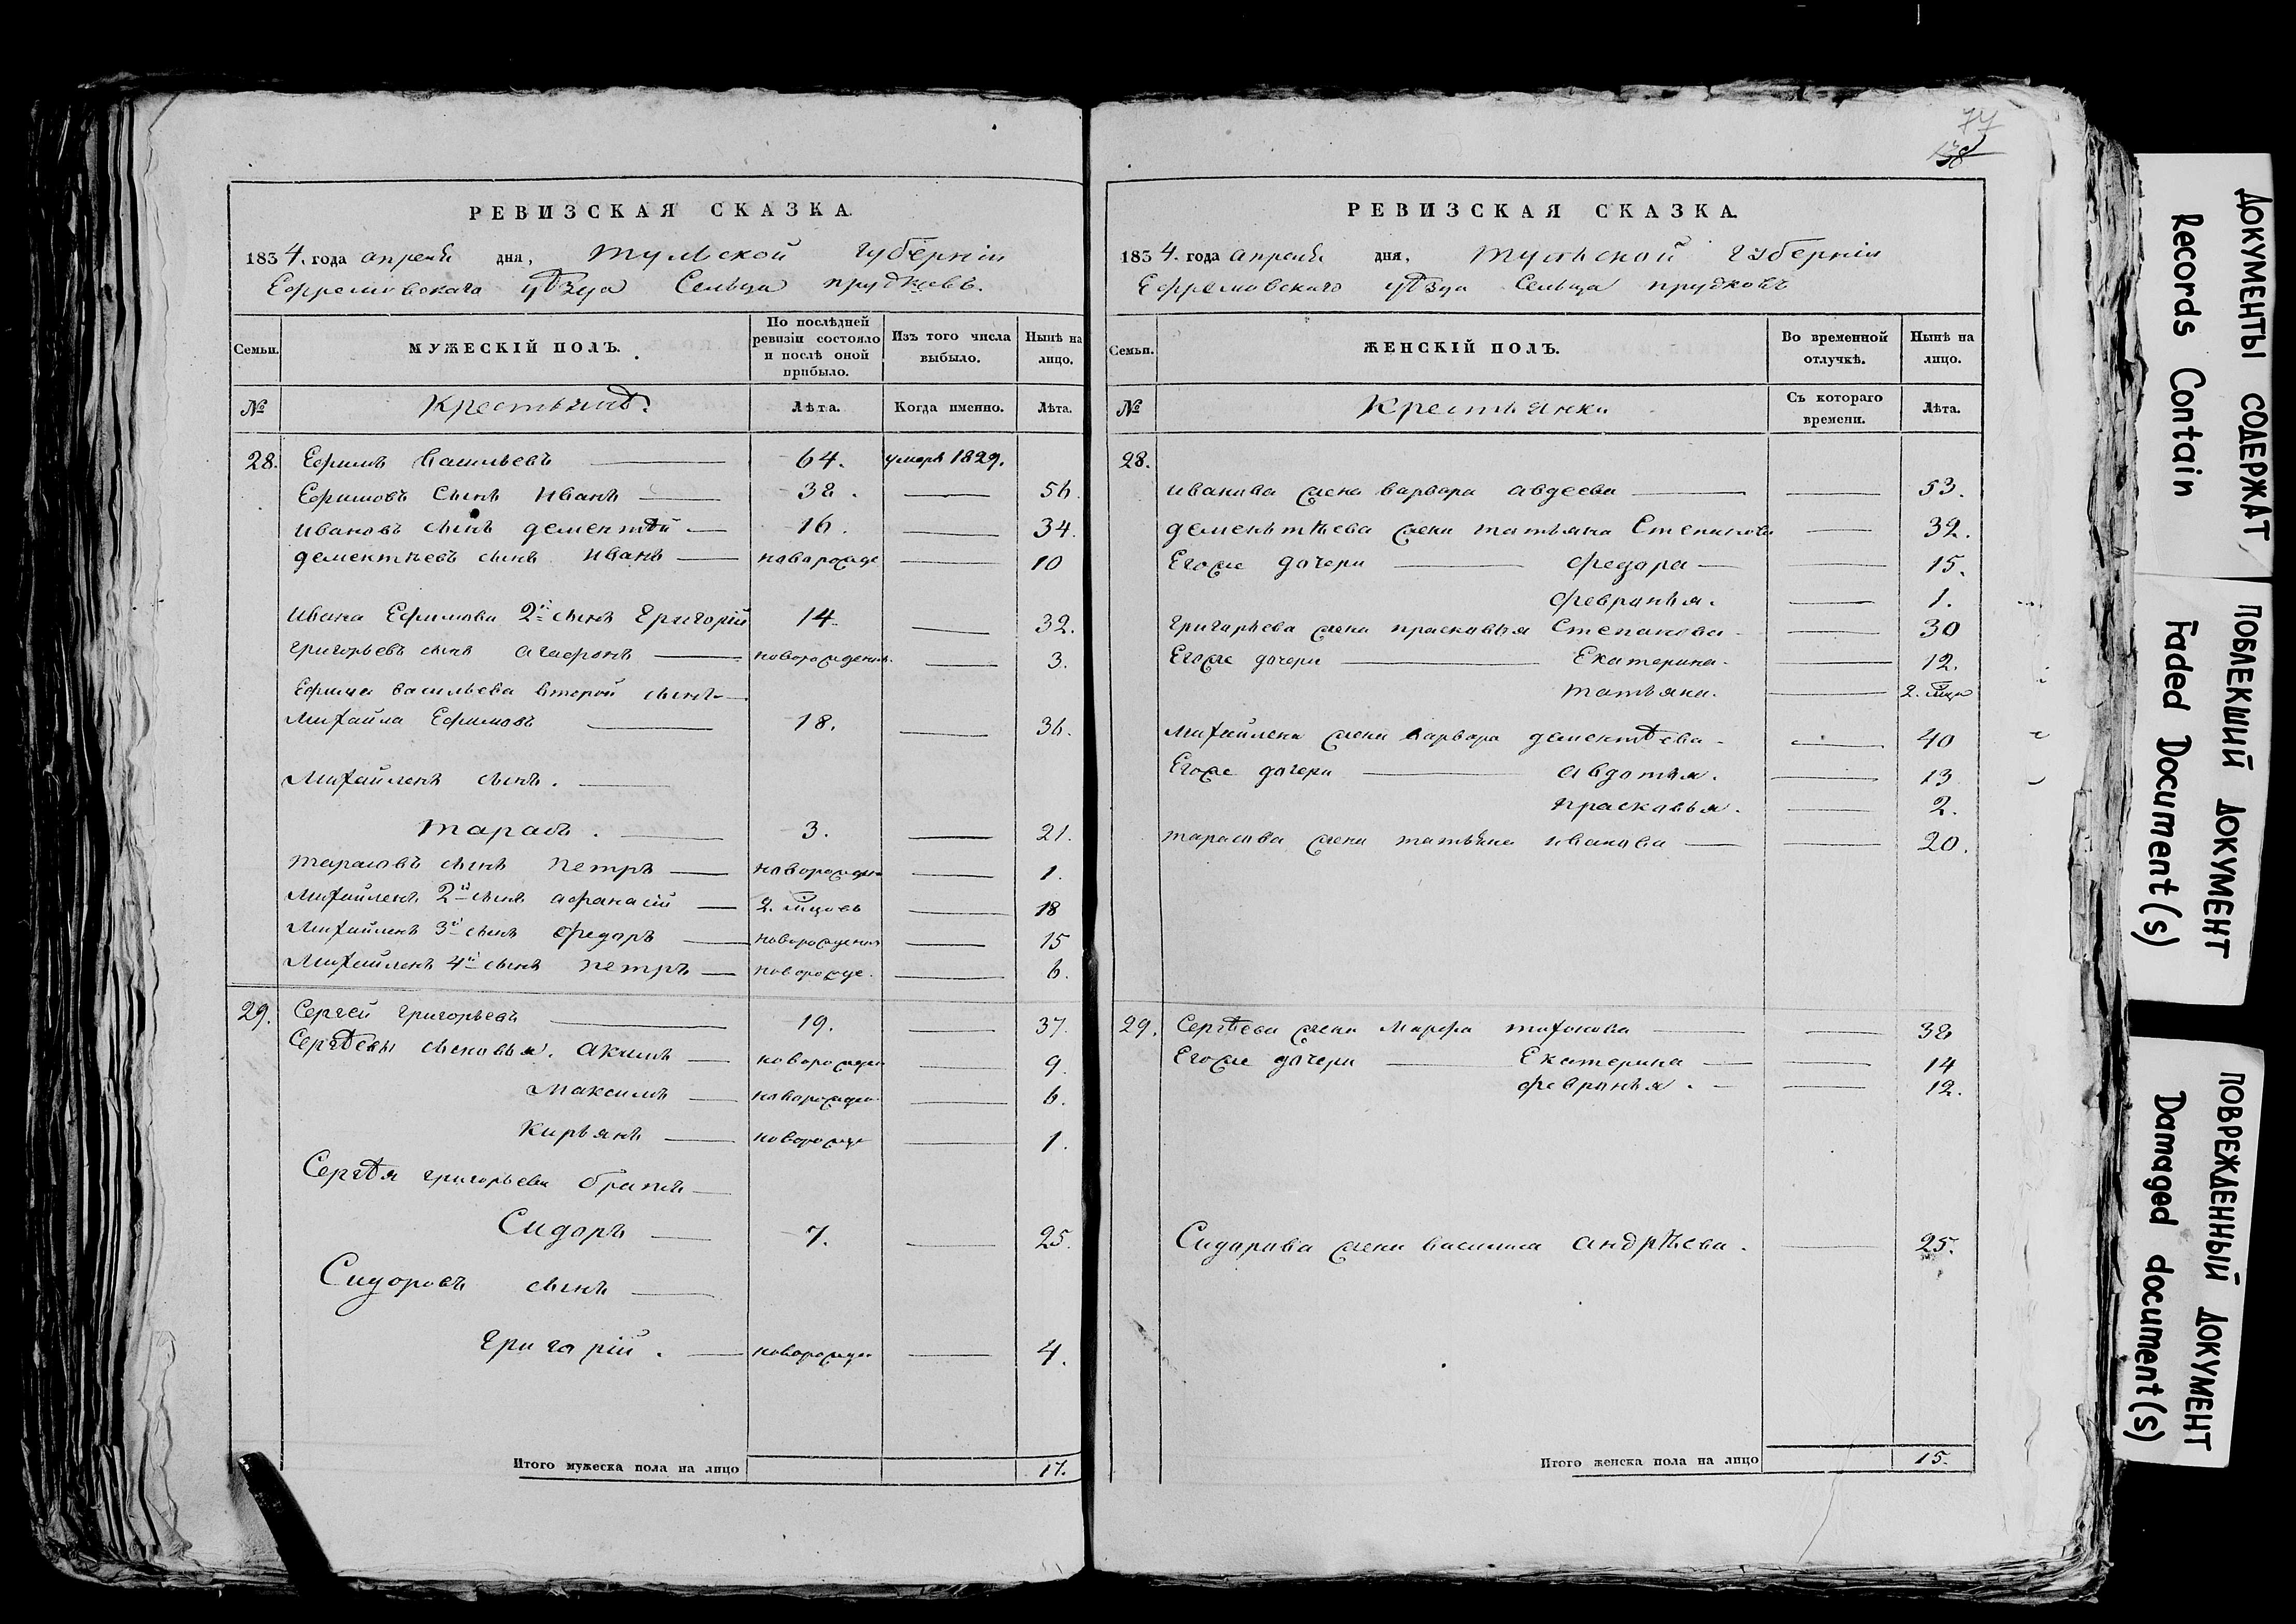 РЕВИЗСКАЯ СКАЗКА.
1834. года апреля дня, тульской губернiи
Ефремовскаго уѣзда Сельца прудковъ.
Семьи. МУЖЕСКIЙ ПОЛЪ. По послѣдней ревизiи состояло и послѣ оной прибыло. Изъ того числа выбыло. Нынѣ на лицо.
№ Крестьянѣ. Лѣта. Когда именно. Лѣта.
28. Ефимъ Васильевъ 64. умеръ 1829.
Ефимовъ сынъ Иванъ 38. 56.
Ивановъ сынъ дементѣй 16. 34.
дементьевъ сынъ Иванъ новорожде 10
Ивана Ефимова 2й сынъ Григорiй 14. 32.
Григорьевъ сынъ агафонъ новорожденъ. 3.
Ефима васильева второй сынъ
Михайла Ефимовъ 18. 36.
Михайленъ сынъ.
тарасъ. 3. 21.
тарасовъ сынъ петръ новорожден 1.
Михайленъ 2й сынъ афанасiй 2. мѣцовъ 18
Михайленъ 3й сынъ федаръ новорожденъ 15
Михайленъ 4й сынъ петръ новорожде. 6.
29. Сергей григорьевъ 19. 37.
Сергѣевы сыновья. акимъ новорожден 9.
Максимъ новорожден 6.
Кирьянъ новорожде 1.
Сергѣя григорьева братъ
Сидоръ 7. 25.
Сидоровъ сынъ
григарiй. новорожден 4.
Итого мужеска пола на лицо 17.
77
138
РЕВИЗСКАЯ СКАЗКА.
1834. года апреля дня. тульской губернiи
Ефремовскаго уѣзда Сельца прудковъ
Семьи. ЖЕНСКIЙ ПОЛЪ. Во временной отлучкѣ. Нынѣ на лицо.
№ Крестьянки Съ котораго времени. Лѣта.
28.
иванова жена варвара авдеева 53.
деменьтьева жена татьяна Степанова 32.
Егоже дочери федара 15.
февранья. 1.
григарьева жена прасковья Степанова 30
Егоже дочери Екатерина. 12.
татьяна. 2. мѣцъ
михайлена жена варвара дементѣева 40
Егоже дочери авдотья. 13
прасковья. 2.
тарасова жена татьяна иванова 20.
29. Сергѣева жена Марфа тихонова 38
Егоже дочери Екатерина 14
февранья. 12.
Сидарова жена василиса андрѣева. 25.
Итого женска пола на лицо 15.
ДОКУМЕНТЫ СОДЕРЖАТ
Records Contain
ПОБЛЕКШИЙ ДОКУМЕНТ
Faded Document(s)
ПОВРЕЖДЕННЫЙ ДОКУМЕНТ
Damaged document(s)